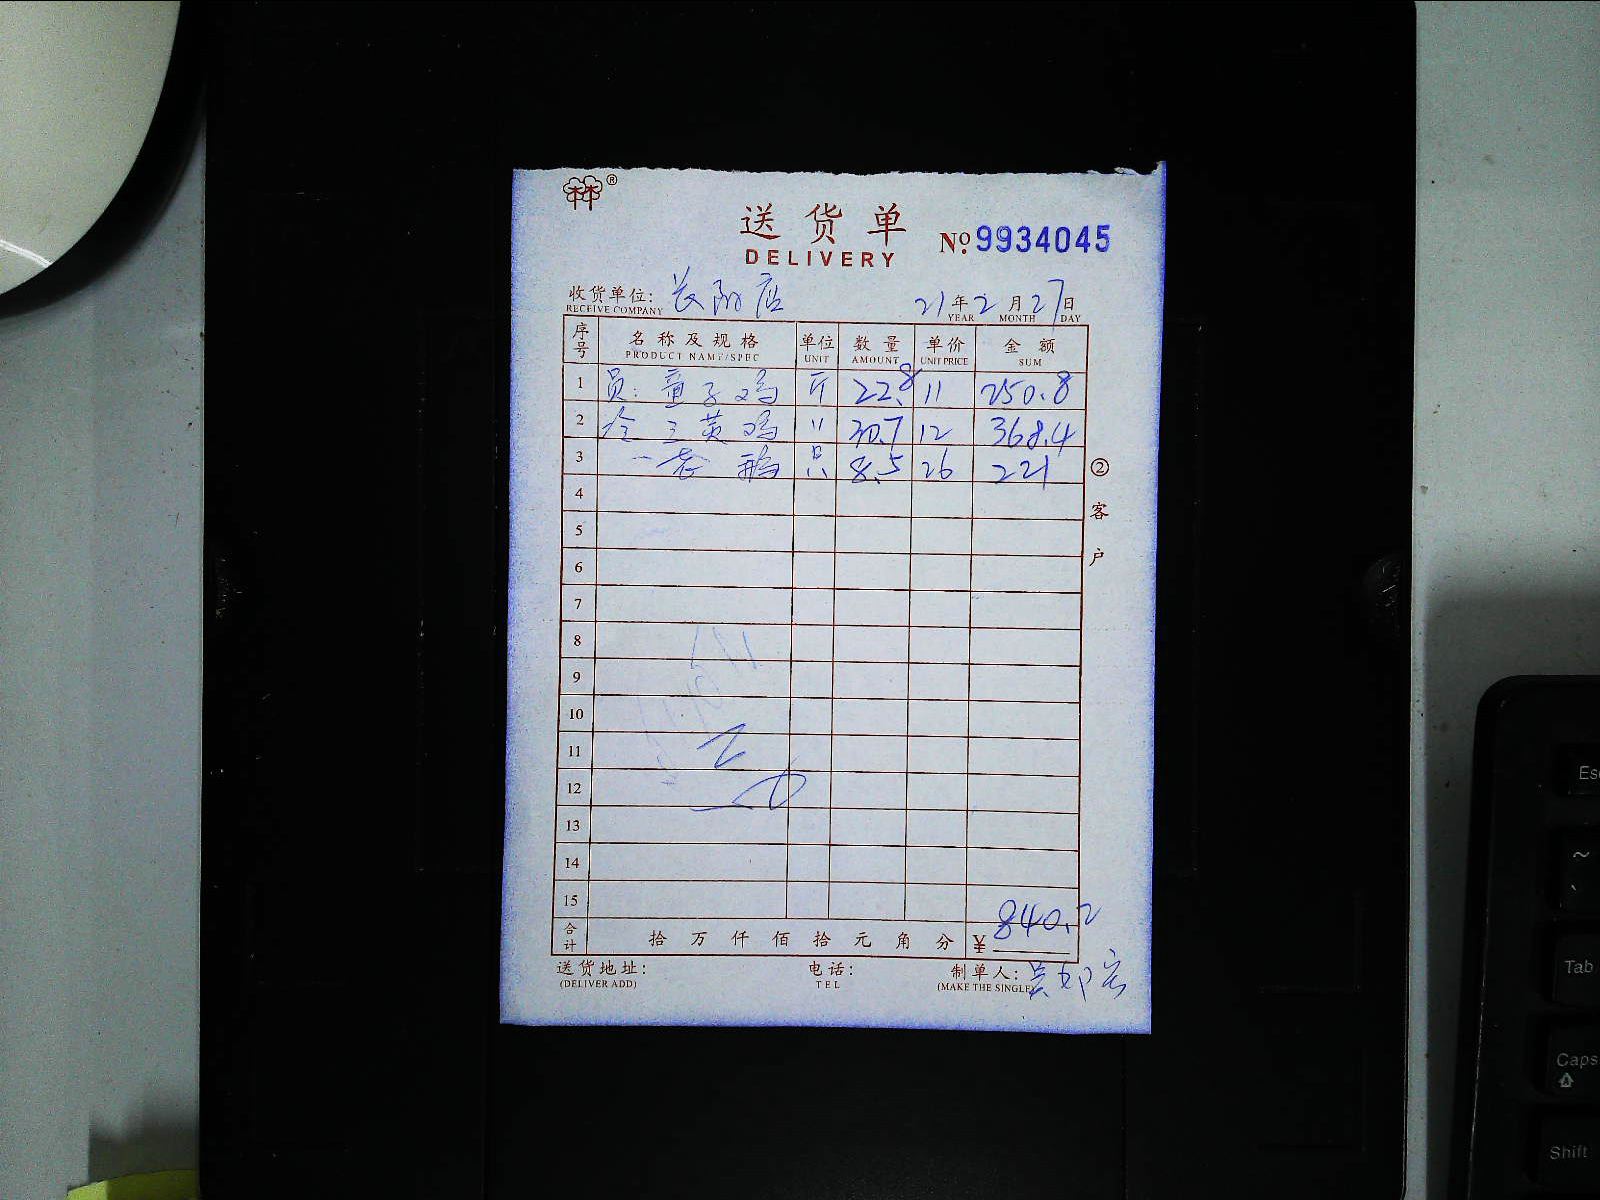 ®
送货单
DELIVERY
№ 9934045
收货单位: 长阳店 21年2月27日
RECEIVE COMPANY YEAR MONTH DAY
序号 名称及规格 单位 数量 单价 金额
PRODUCT NAME/SPEC UNIT AMOUNT UNIT PRICE SUM
1 员: 童子鸡 斤 22.8 11 250.8
2 三黄鸡 〃 30.7 12 368.4
3 一老鹅 只 8.5 26 221
4
5
6
7
8
9
10
11
12
13
14
15
② 客户
合计 拾万仟佰拾元角分 ¥ 840.2
送货地址: 电话: 制单人:
(DELIVER ADD) TEL (MAKE THE SINGLE)
Esc
~
Tab
Caps
Shift